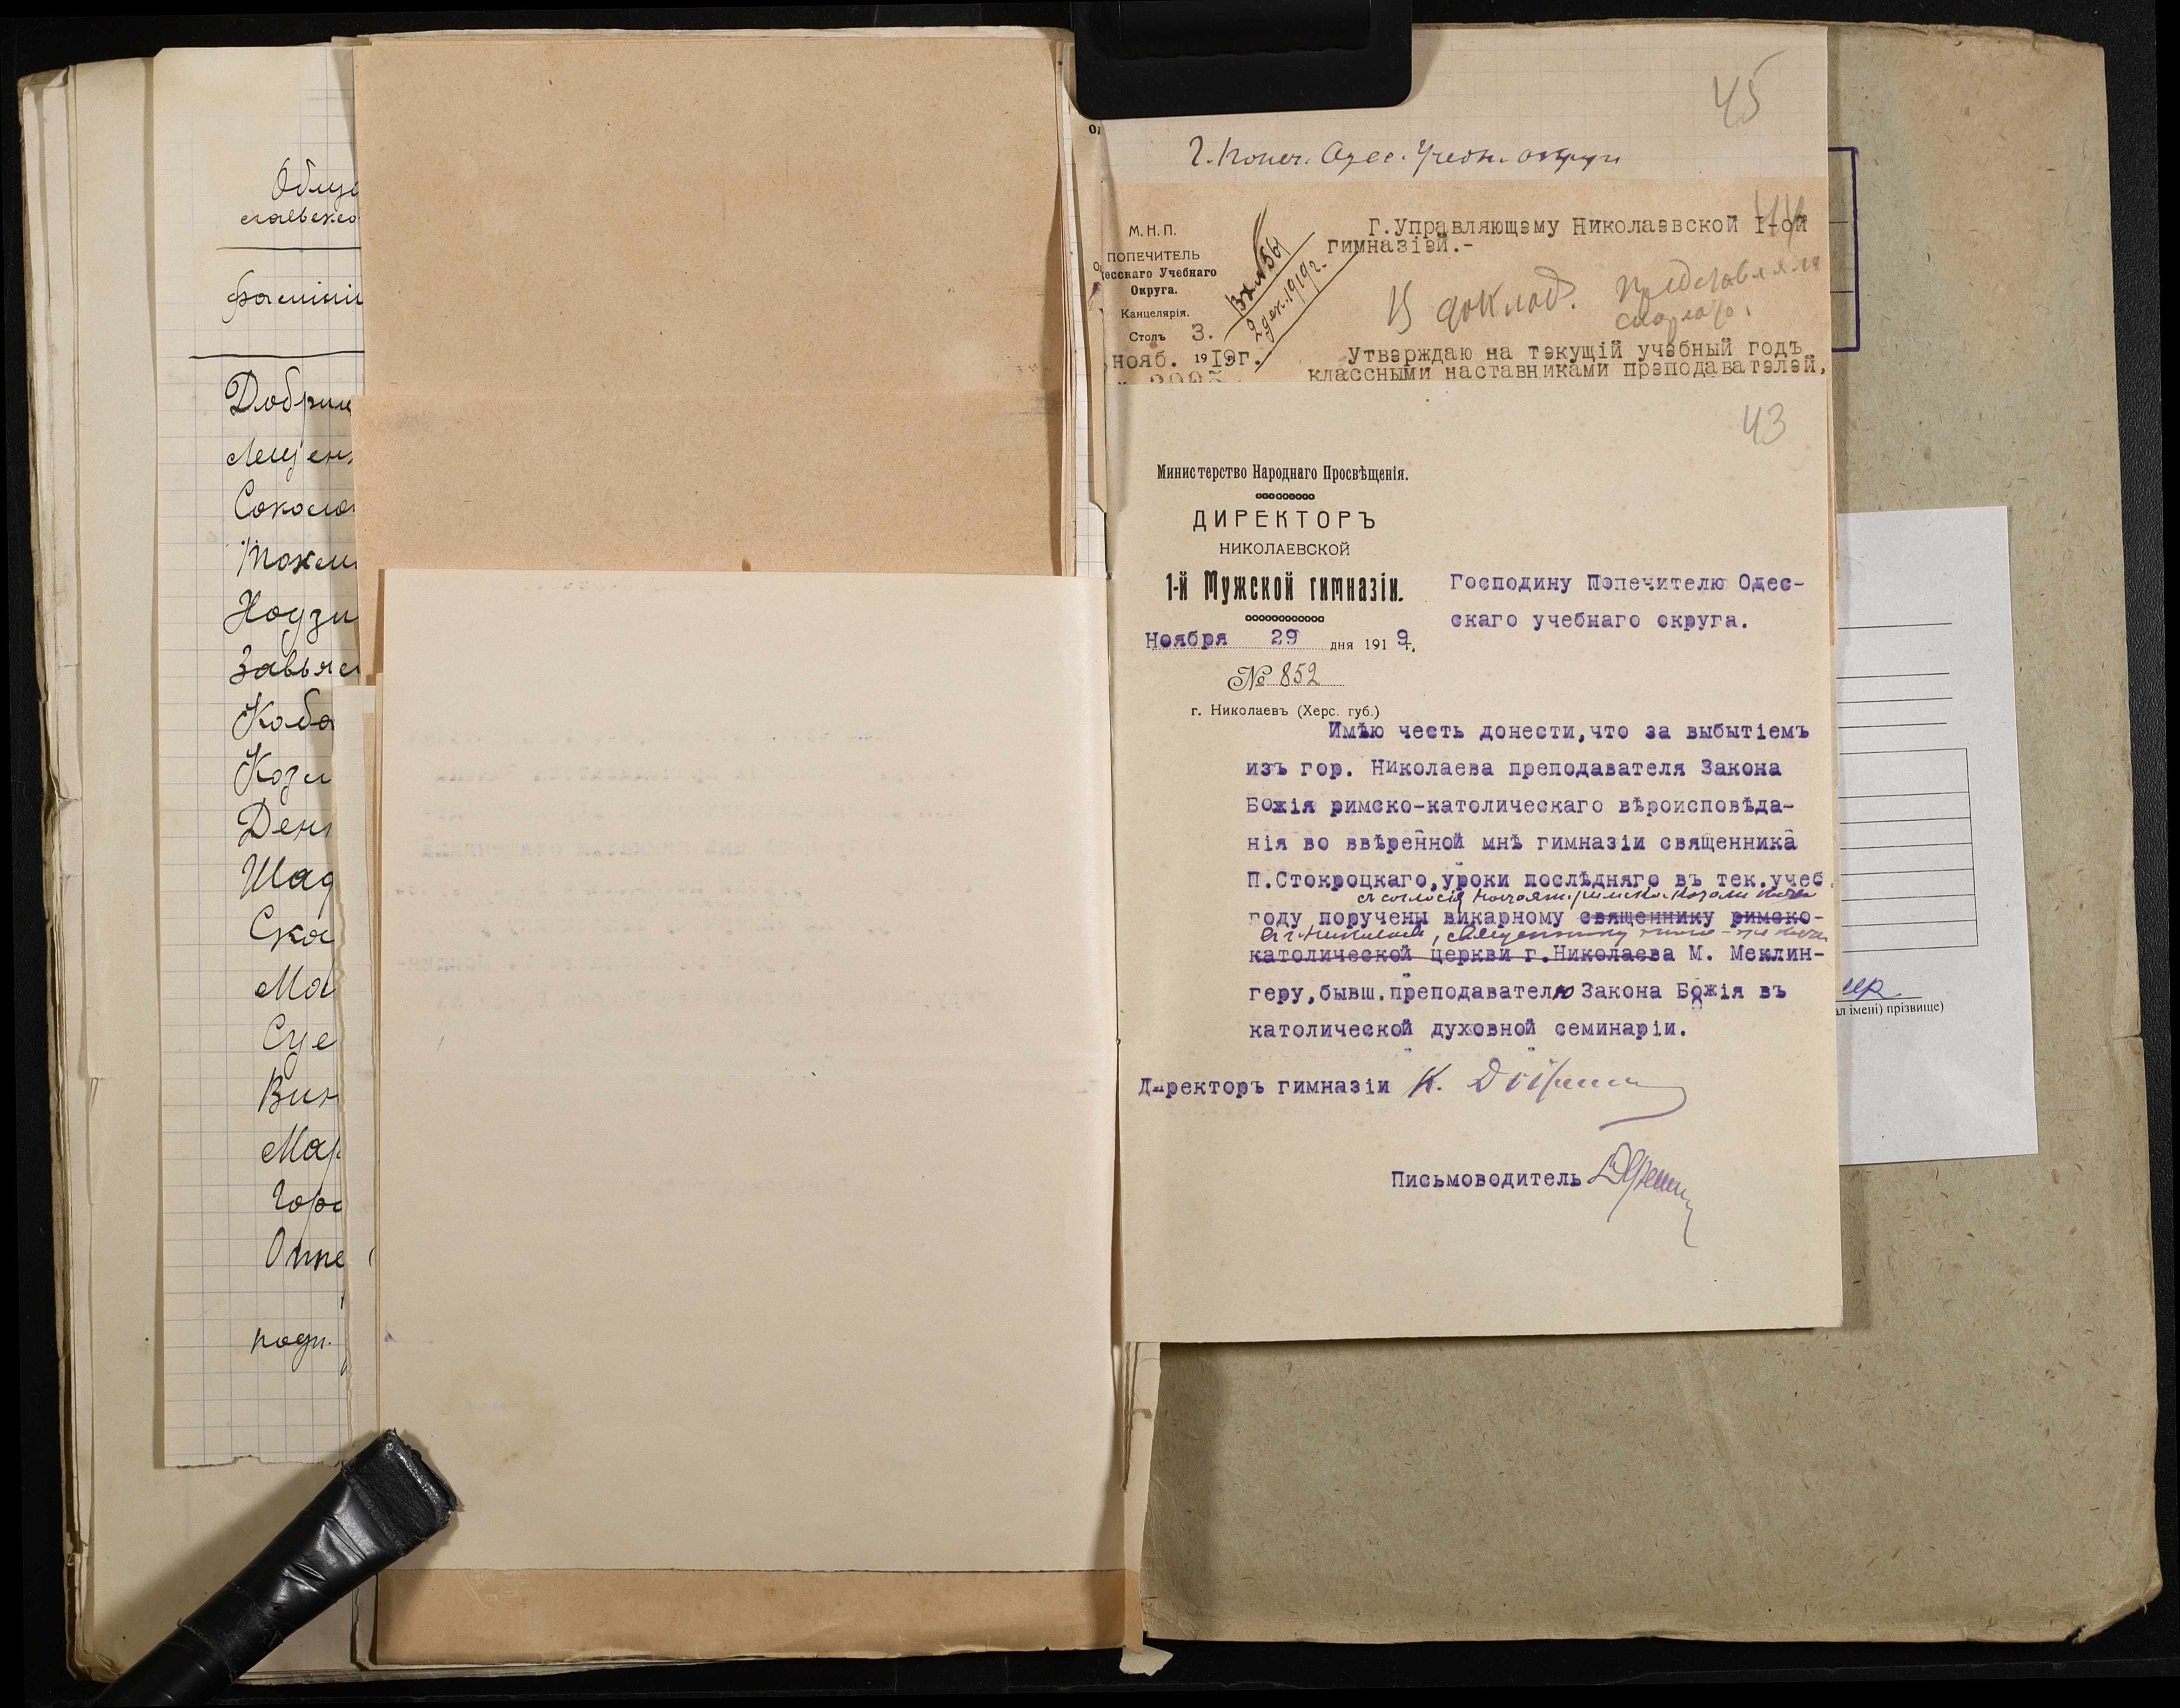 Облуд
славско
фамилі
Добрин
Лещен
Соколо
Токм
Ноузи
Завьял
Кобо
Кози
Ден
Шад
Ска
Ма
Суе
Вин
Мар
Горо
Оппе
45
Г. Попеч. Одес. Учебн. округа
М. Н. П.
ПОПЕЧИТЕЛЬ
десскаго Учебнаго
Округа.
Канцелярія.
Столъ 3.
нояб. 1919г.
Вх № 561
2 дек. 1919 г.
Г.Управляющему Николаевской I-ой
гимназіей.-
44
К доклад.
Утверждаю на текущій учебный годъ
классными наставниками преподавателей,
43
Министерство Народнаго Просвѣщенія.
ДИРЕКТОРЪ
НИКОЛАЕВСКОЙ
1-й Мужской гимназіи.
Ноября 29 дня 1919 г.
№ 852
г. Николаевъ (Херс. губ.)
Господину Попечителю Одес-
скаго учебнаго округа.
Имѣю честь донести,что за выбытіемъ
изъ гор. Николаева преподавателя Закона
Божія римско-католическаго вѣроисповѣда-
нія во ввѣренной мнѣ гимназіи священника
П.Стокроцкаго,уроки послѣдняго въ тек.учеб.
съ согласія настоят. римско-катол.
году поручены викарному священнику римско-
въ г. Николаевѣ, священнику
католической церкви г.Николаева М. Меклин-
геру,бывш.преподавателю Закона Божія въ
католической духовной семинаріи.
Директоръ гимназіи К.
Письмоводитель
ал імені) прізвище)